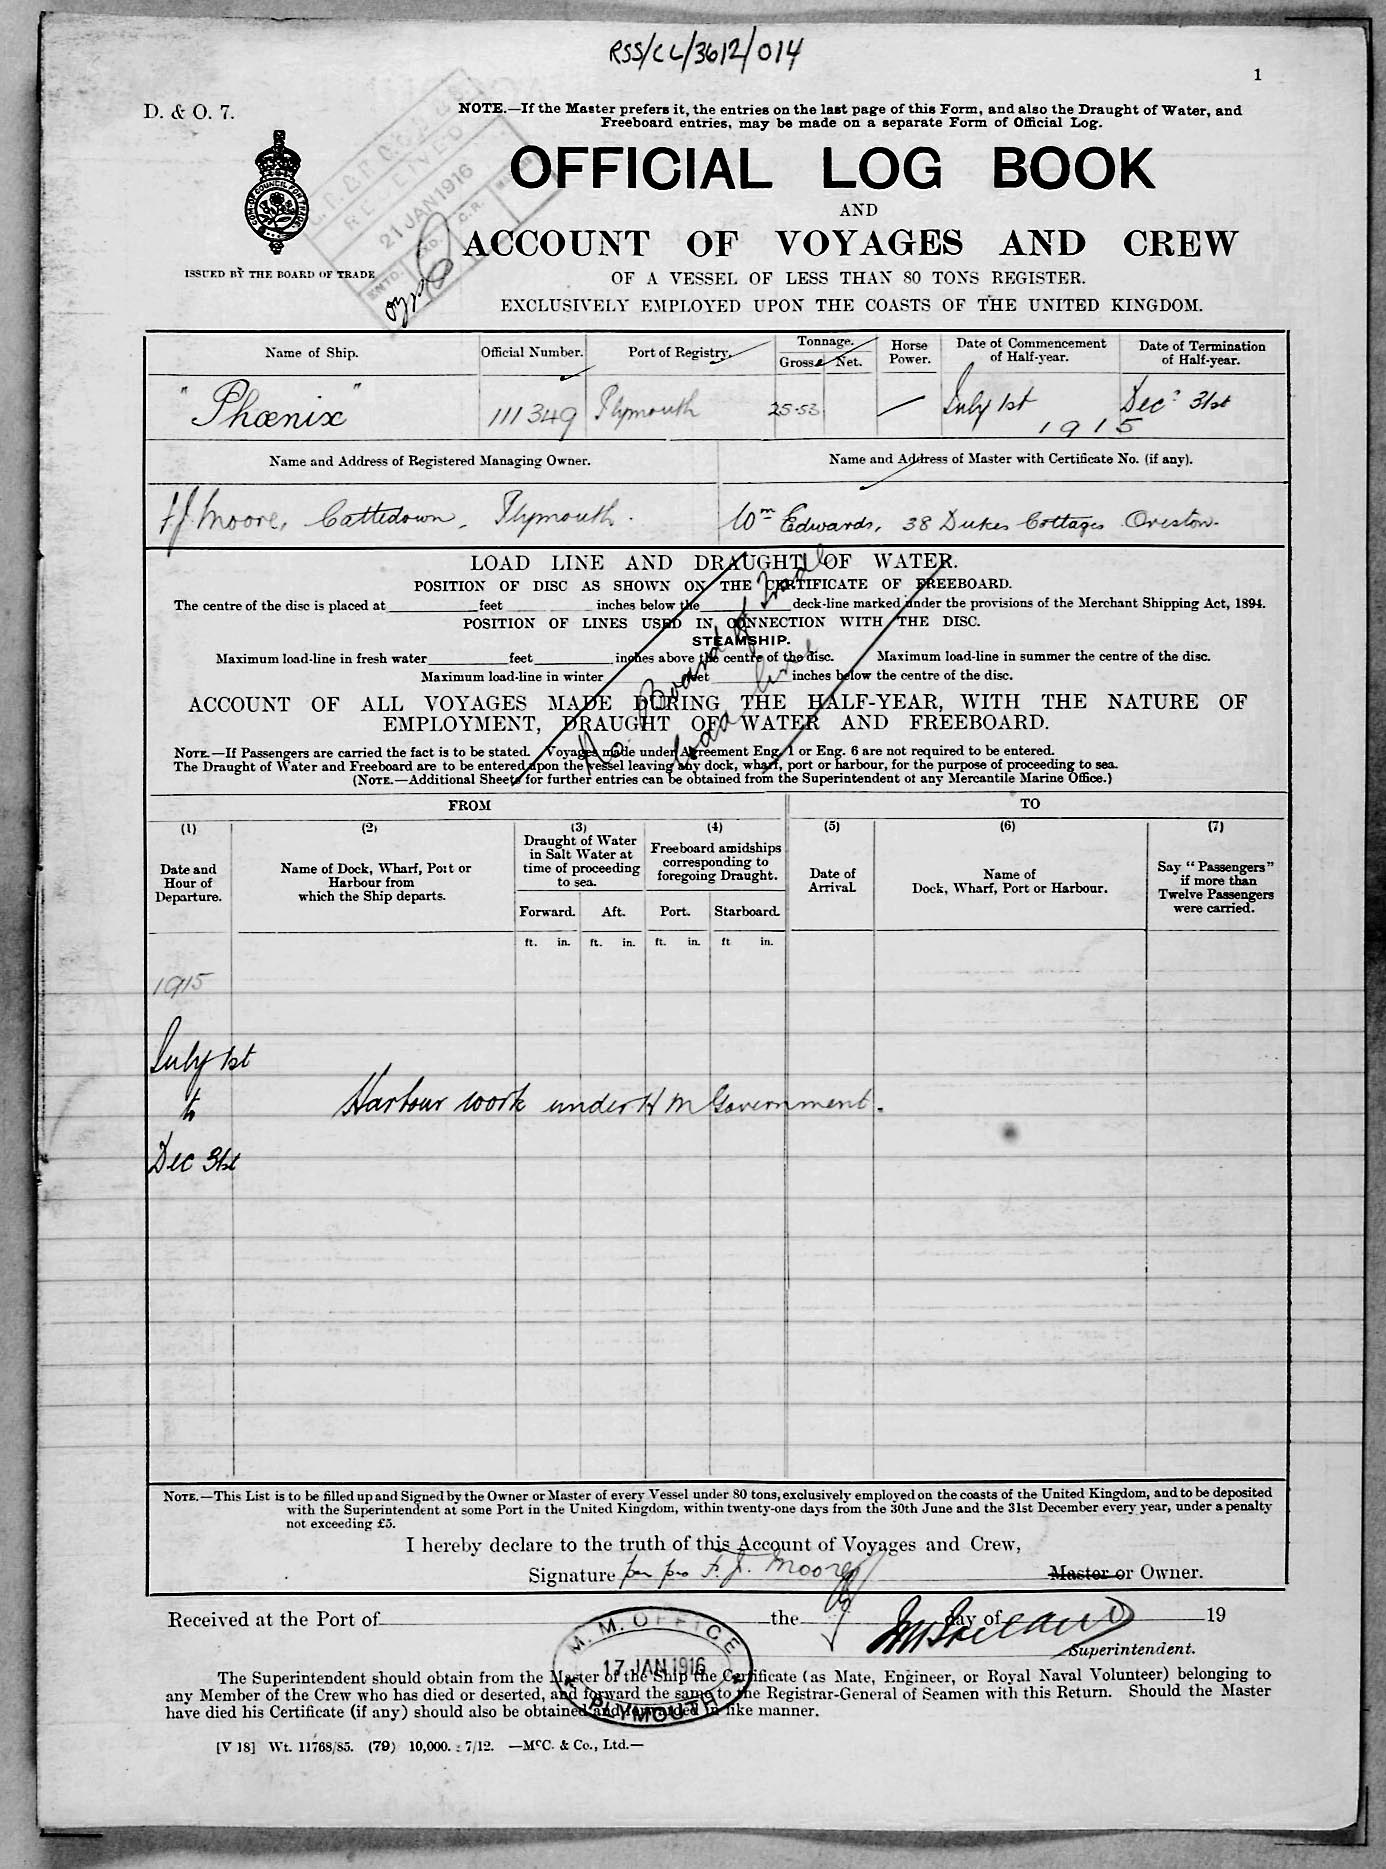 RSS/CL/3612/014
1
D. & O. 7.
NOTE.—If the Master prefers it, the entries on the last page of this Form, and also the Draught of Water, and
Freeboard entries, may be made on a separate Form of Official Log.
OFFICIAL LOG BOOK
AND
ACCOUNT OF VOYAGES AND CREW
OF A VESSEL OF LESS THAN 80 TONS REGISTER.
EXCLUSIVELY EMPLOYED UPON THE COASTS OF THE UNITED KINGDOM.
ISSUED BY THE BOARD OF TRADE
RECEIVED
21 JAN 1916
ENTD.
C.R.
Name of Ship.
Official Number.
Port of Registry.
Tonnage.
Gross. Net.
Horse Power.
Date of Commencement of Half-year.
Date of Termination of Half-year.
"Phœnix"
111349
Plymouth
25.53
July 1st
Decr 31st
1915
Name and Address of Registered Managing Owner.
Name and Address of Master with Certificate No. (if any).
F J Moore, Cattedown, Plymouth.
Wm Edwards, 38 Dukes Cottages Oreston.
LOAD LINE AND DRAUGHT OF WATER.
POSITION OF DISC AS SHOWN ON THE CERTIFICATE OF FREEBOARD.
The centre of the disc is placed at feet inches below the deck-line marked under the provisions of the Merchant Shipping Act, 1894.
POSITION OF LINES USED IN CONNECTION WITH THE DISC.
STEAMSHIP.
Maximum load-line in fresh water feet inches above the centre of the disc. Maximum load-line in summer the centre of the disc.
Maximum load-line in winter feet inches below the centre of the disc.
No Board of Trade
Load line
ACCOUNT OF ALL VOYAGES MADE DURING THE HALF-YEAR, WITH THE NATURE OF
EMPLOYMENT, DRAUGHT OF WATER AND FREEBOARD.
NOTE.—If Passengers are carried the fact is to be stated. Voyages made under Agreement Eng. 1 or Eng. 6 are not required to be entered.
The Draught of Water and Freeboard are to be entered upon the vessel leaving any dock, wharf, port or harbour, for the purpose of proceeding to sea.
(NOTE.—Additional Sheets for further entries can be obtained from the Superintendent of any Mercantile Marine Office.)
FROM
TO
(1)
Date and
Hour of
Departure.
(2)
Name of Dock, Wharf, Port or
Harbour from
which the Ship departs.
(3)
Draught of Water
in Salt Water at
time of proceeding
to sea.
Forward. Aft.
(4)
Freeboard amidships
corresponding to
foregoing Draught.
Port. Starboard.
(5)
Date of
Arrival.
(6)
Name of
Dock, Wharf, Port or Harbour.
(7)
Say "Passengers"
if more than
Twelve Passengers
were carried.
ft. in. ft. in. ft. in. ft in.
1915
July 1st
to
Harbour work under H M Government.
Dec 31st
NOTE.—This List is to be filled up and Signed by the Owner or Master of every Vessel under 80 tons, exclusively employed on the coasts of the United Kingdom, and to be deposited
with the Superintendent at some Port in the United Kingdom, within twenty-one days from the 30th June and the 31st December every year, under a penalty
not exceeding £5.
I hereby declare to the truth of this Account of Voyages and Crew,
Signature per pro F. J. Moore Master or Owner.
Received at the Port of the day of 19
Superintendent.
M. M. OFFICE
17 JAN 1916
PLYMOUTH
The Superintendent should obtain from the Master of the Ship the Certificate (as Mate, Engineer, or Royal Naval Volunteer) belonging to
any Member of the Crew who has died or deserted, and forward the same to the Registrar-General of Seamen with this Return. Should the Master
have died his Certificate (if any) should also be obtained and forwarded in like manner.
[V 18] Wt. 11768/85. (79) 10,000. 7/12. —McC. & Co., Ltd.—